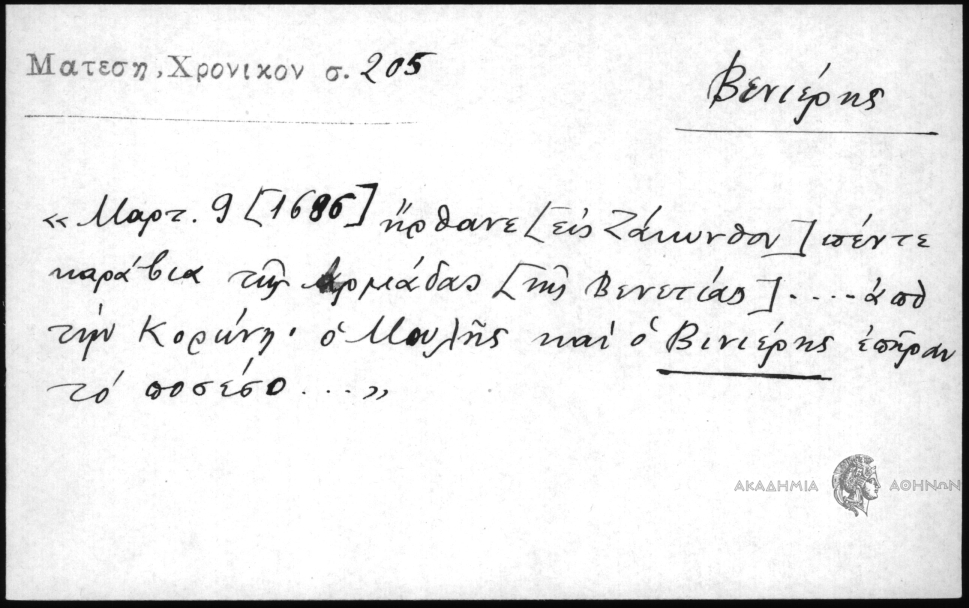 Ματεση, Χρονικον σ. 205
Βενιέρης
« Μαρτ. 9 [1686] ἤρθανε [εἰς Ζάκυνθον] πέντε
καράβια τῆς Ἀρμάδας [τῆς Βενετίας] .... ἀπὸ
τὴν Κορώνη· ὁ Μουλῆς καὶ ὁ Βινιέρης ἐπῆραν
τὸ ποσέσο ... »
ΑΚΑΔΗΜΙΑ ΑΘΗΝΩΝ